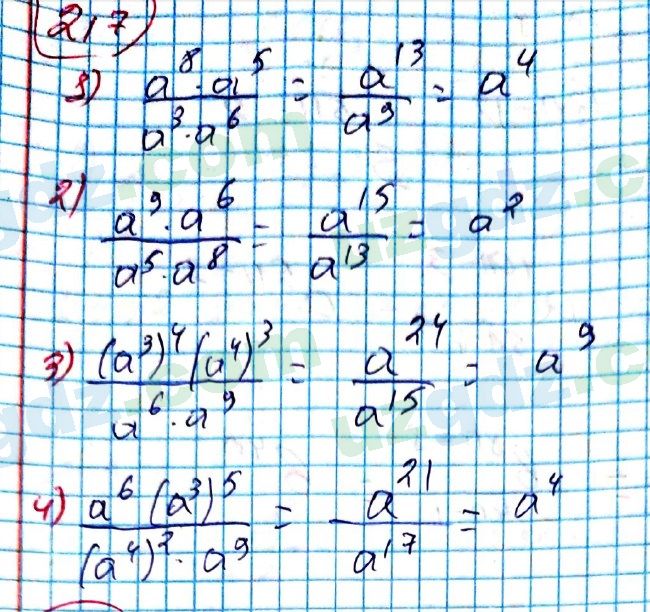 217
1) a⁸·a⁵ / a³·a⁶ = a¹³ / a⁹ = a⁴
2) a⁹·a⁶ / a⁵·a⁸ = a¹⁵ / a¹³ = a²
3) (a³)⁴(a⁴)³ / a⁶·a⁹ = a²⁴ / a¹⁵ = a⁹
4) a⁶(a³)⁵ / (a⁴)²·a⁹ = a²¹ / a¹⁷ = a⁴
uzgdz.com